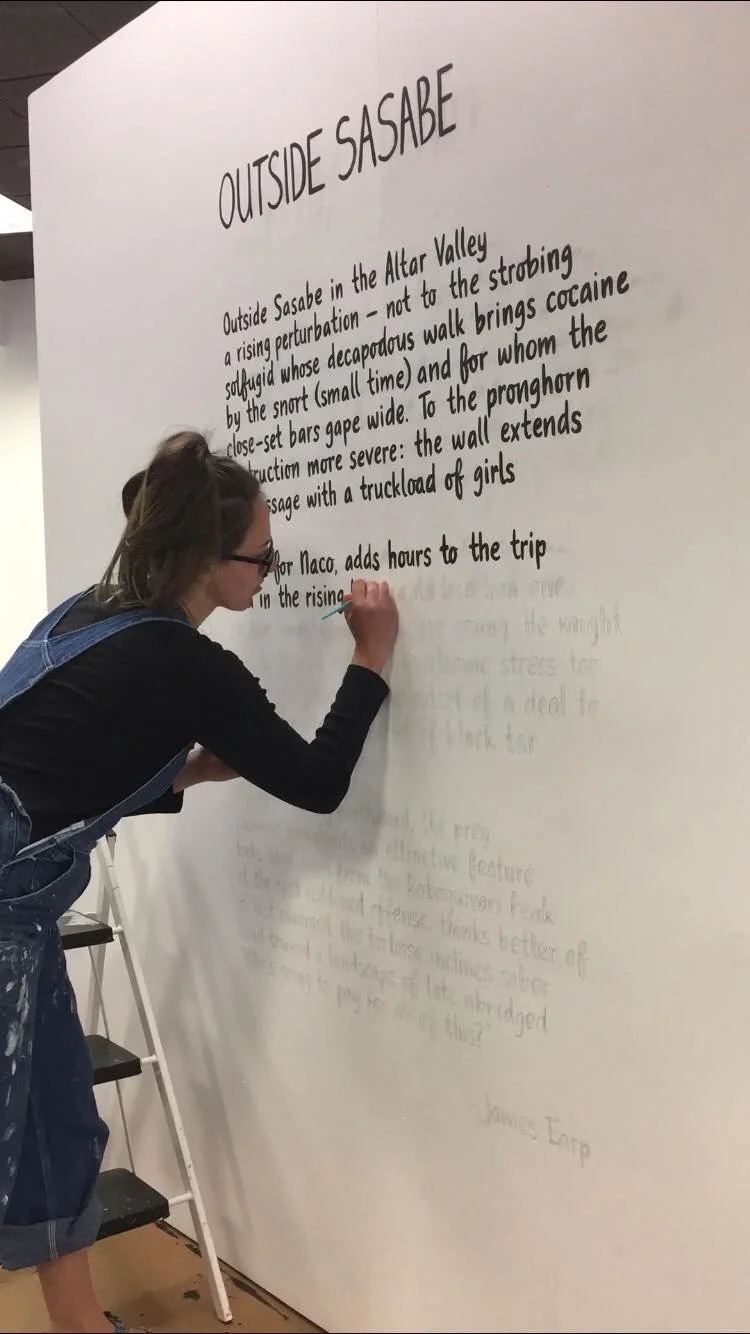 OUTSIDE SASABE
Outside Sasabe in the Altar Valley
a rising perturbation – not to the strobing
solfugid whose decapodous walk brings cocaine
by the snort (small time) and for whom the
close-set bars gape wide. To the pronghorn
ruction more severe: the wall extends
ssage with a truckload of girls
for Naco, adds hours to the trip
in the rising
young. He might
stress too
of a deal to
black tar
the prey
attractive feature
from the Baboquivari Peak
at the spot offense, thinks better of
the tortoise inclines sober
toward a landscape of late abridged
going to pay for all of this?"
- James Earp